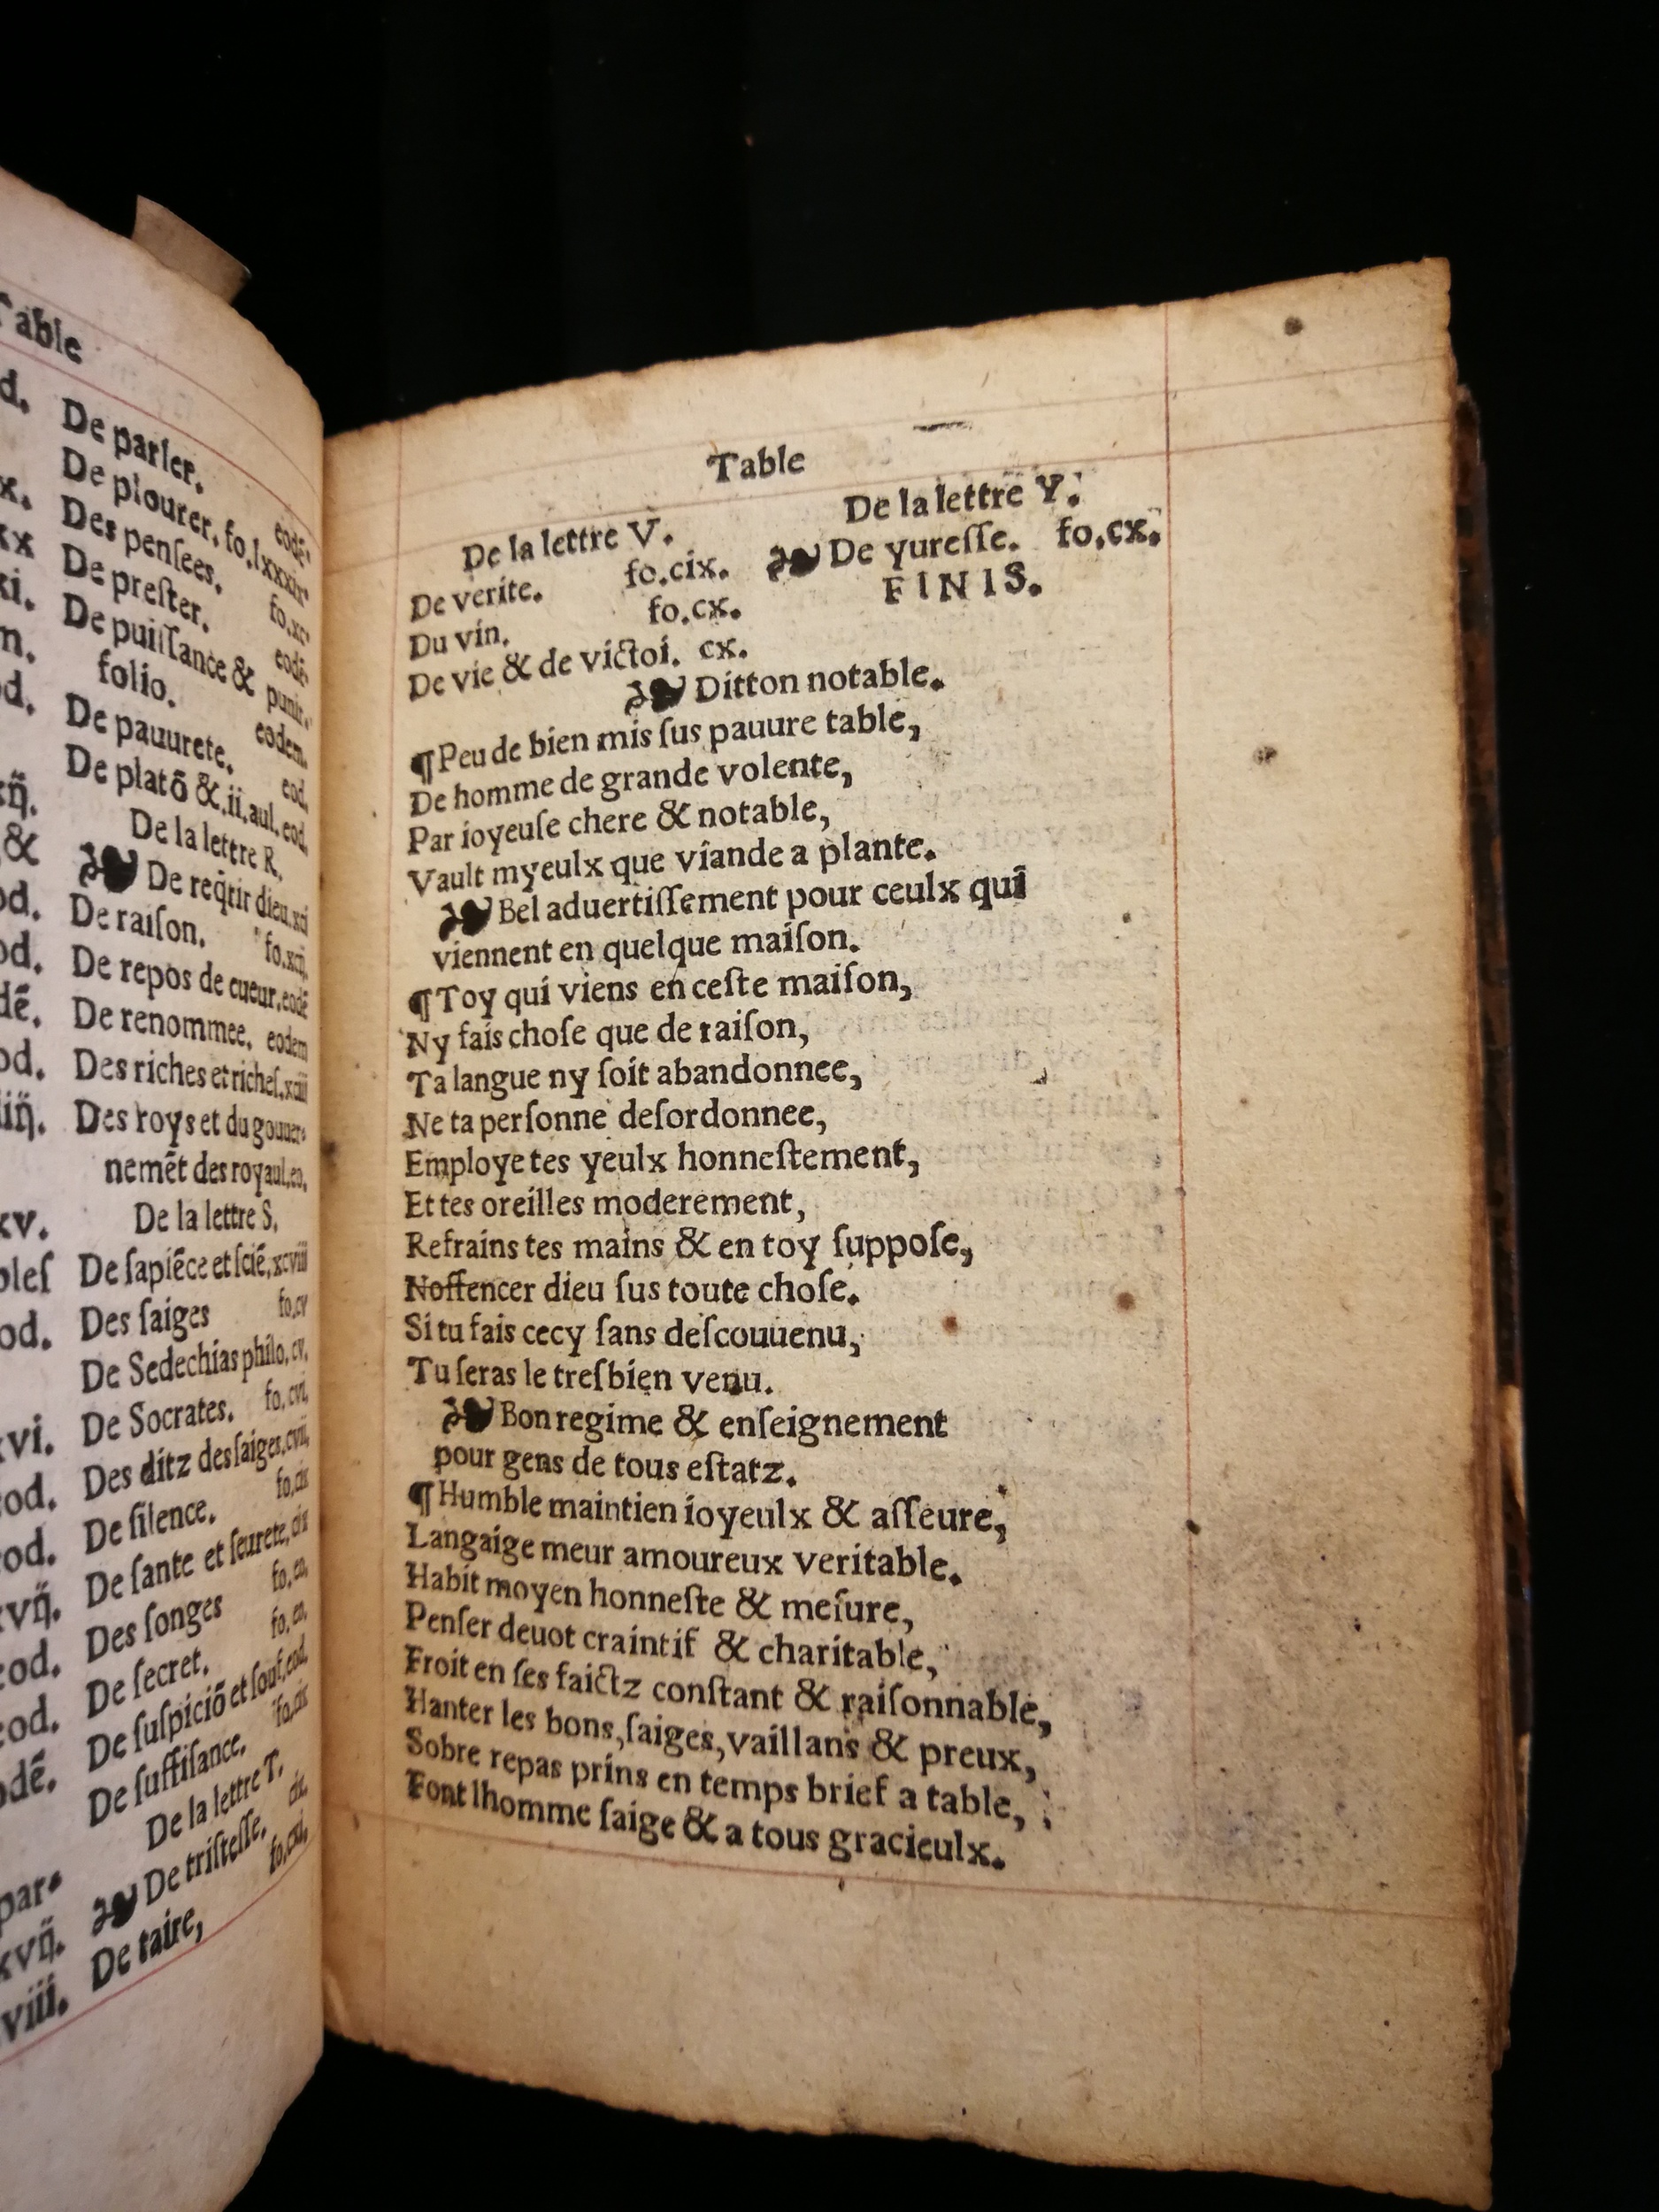 Table
d.
x.
xx
xi.
n.
d.
&
od.
od.
dē.
od.
xv.
pleſ
od.
xvi.
eod.
eod.
eod.
eod.
odē.
par-
viii.
De parler. eodē.
De plourer. fo.lxxxix
Des penſees. fo.xc.
De preſter. eodē.
De puiſſance & punir.
folio. eodem.
De pauurete. eod.
De platō &.ii.aul.eod.
De la lettre R.
❧ De reqrir dieu.xci
De raiſon. fo.xcij.
De repos de cueur.eodē
De renommee. eodem
Des riches et richeſ.xciii
Des roys et du gouuer-
nemēt des royaul.eo.
De la lettre S.
De ſapiēce et ſciē.xcviii
Des ſaiges fo.cv
De Sedechias philo.cv.
De Socrates. fo.cvi.
Des ditz des ſaiges.cvii.
De ſilence. fo.cix
De ſante et ſeurete.cix
Des ſonges fo.eo.
De ſecret. fo.eo.
De ſuſpiciō et ſouſ.eod.
De ſuffiſance. fo.cix
De la lettre T.
❧ De triſteſſe. cix.
De taire,
Table
De la lettre V.
De verite. fo.cix.
Du vin. fo.cx.
De vie & de victoi. cx.
De la lettre Y.
❧ De yureſſe. fo.cx.
FINIS.
❧ Ditton notable.
¶ Peu de bien mis ſus pauure table,
De homme de grande volente,
Par ioyeuſe chere & notable,
Vault myeulx que viande a plante.
❧ Bel aduertiſſement pour ceulx qui
viennent en quelque maiſon.
¶ Toy qui viens en ceſte maiſon,
Ny fais choſe que de raiſon,
Ta langue ny ſoit abandonnee,
Ne ta perſonne deſordonnee,
Employe tes yeulx honneſtement,
Et tes oreilles moderement,
Refrains tes mains & en toy ſuppoſe,
Noffencer dieu ſus toute choſe.
Si tu fais cecy ſans deſcouuenu,
Tu ſeras le treſbien venu.
❧ Bon regime & enſeignement
pour gens de tous eſtatz.
¶ Humble maintien ioyeulx & aſſeure,
Langaige meur amoureux veritable.
Habit moyen honneſte & meſure,
Penſer deuot craintif & charitable,
Froit en ſes faictz conſtant & raiſonnable,
Hanter les bons, ſaiges, vaillans & preux,
Sobre repas prins en temps brief a table,
Font lhomme ſaige & a tous gracieulx.